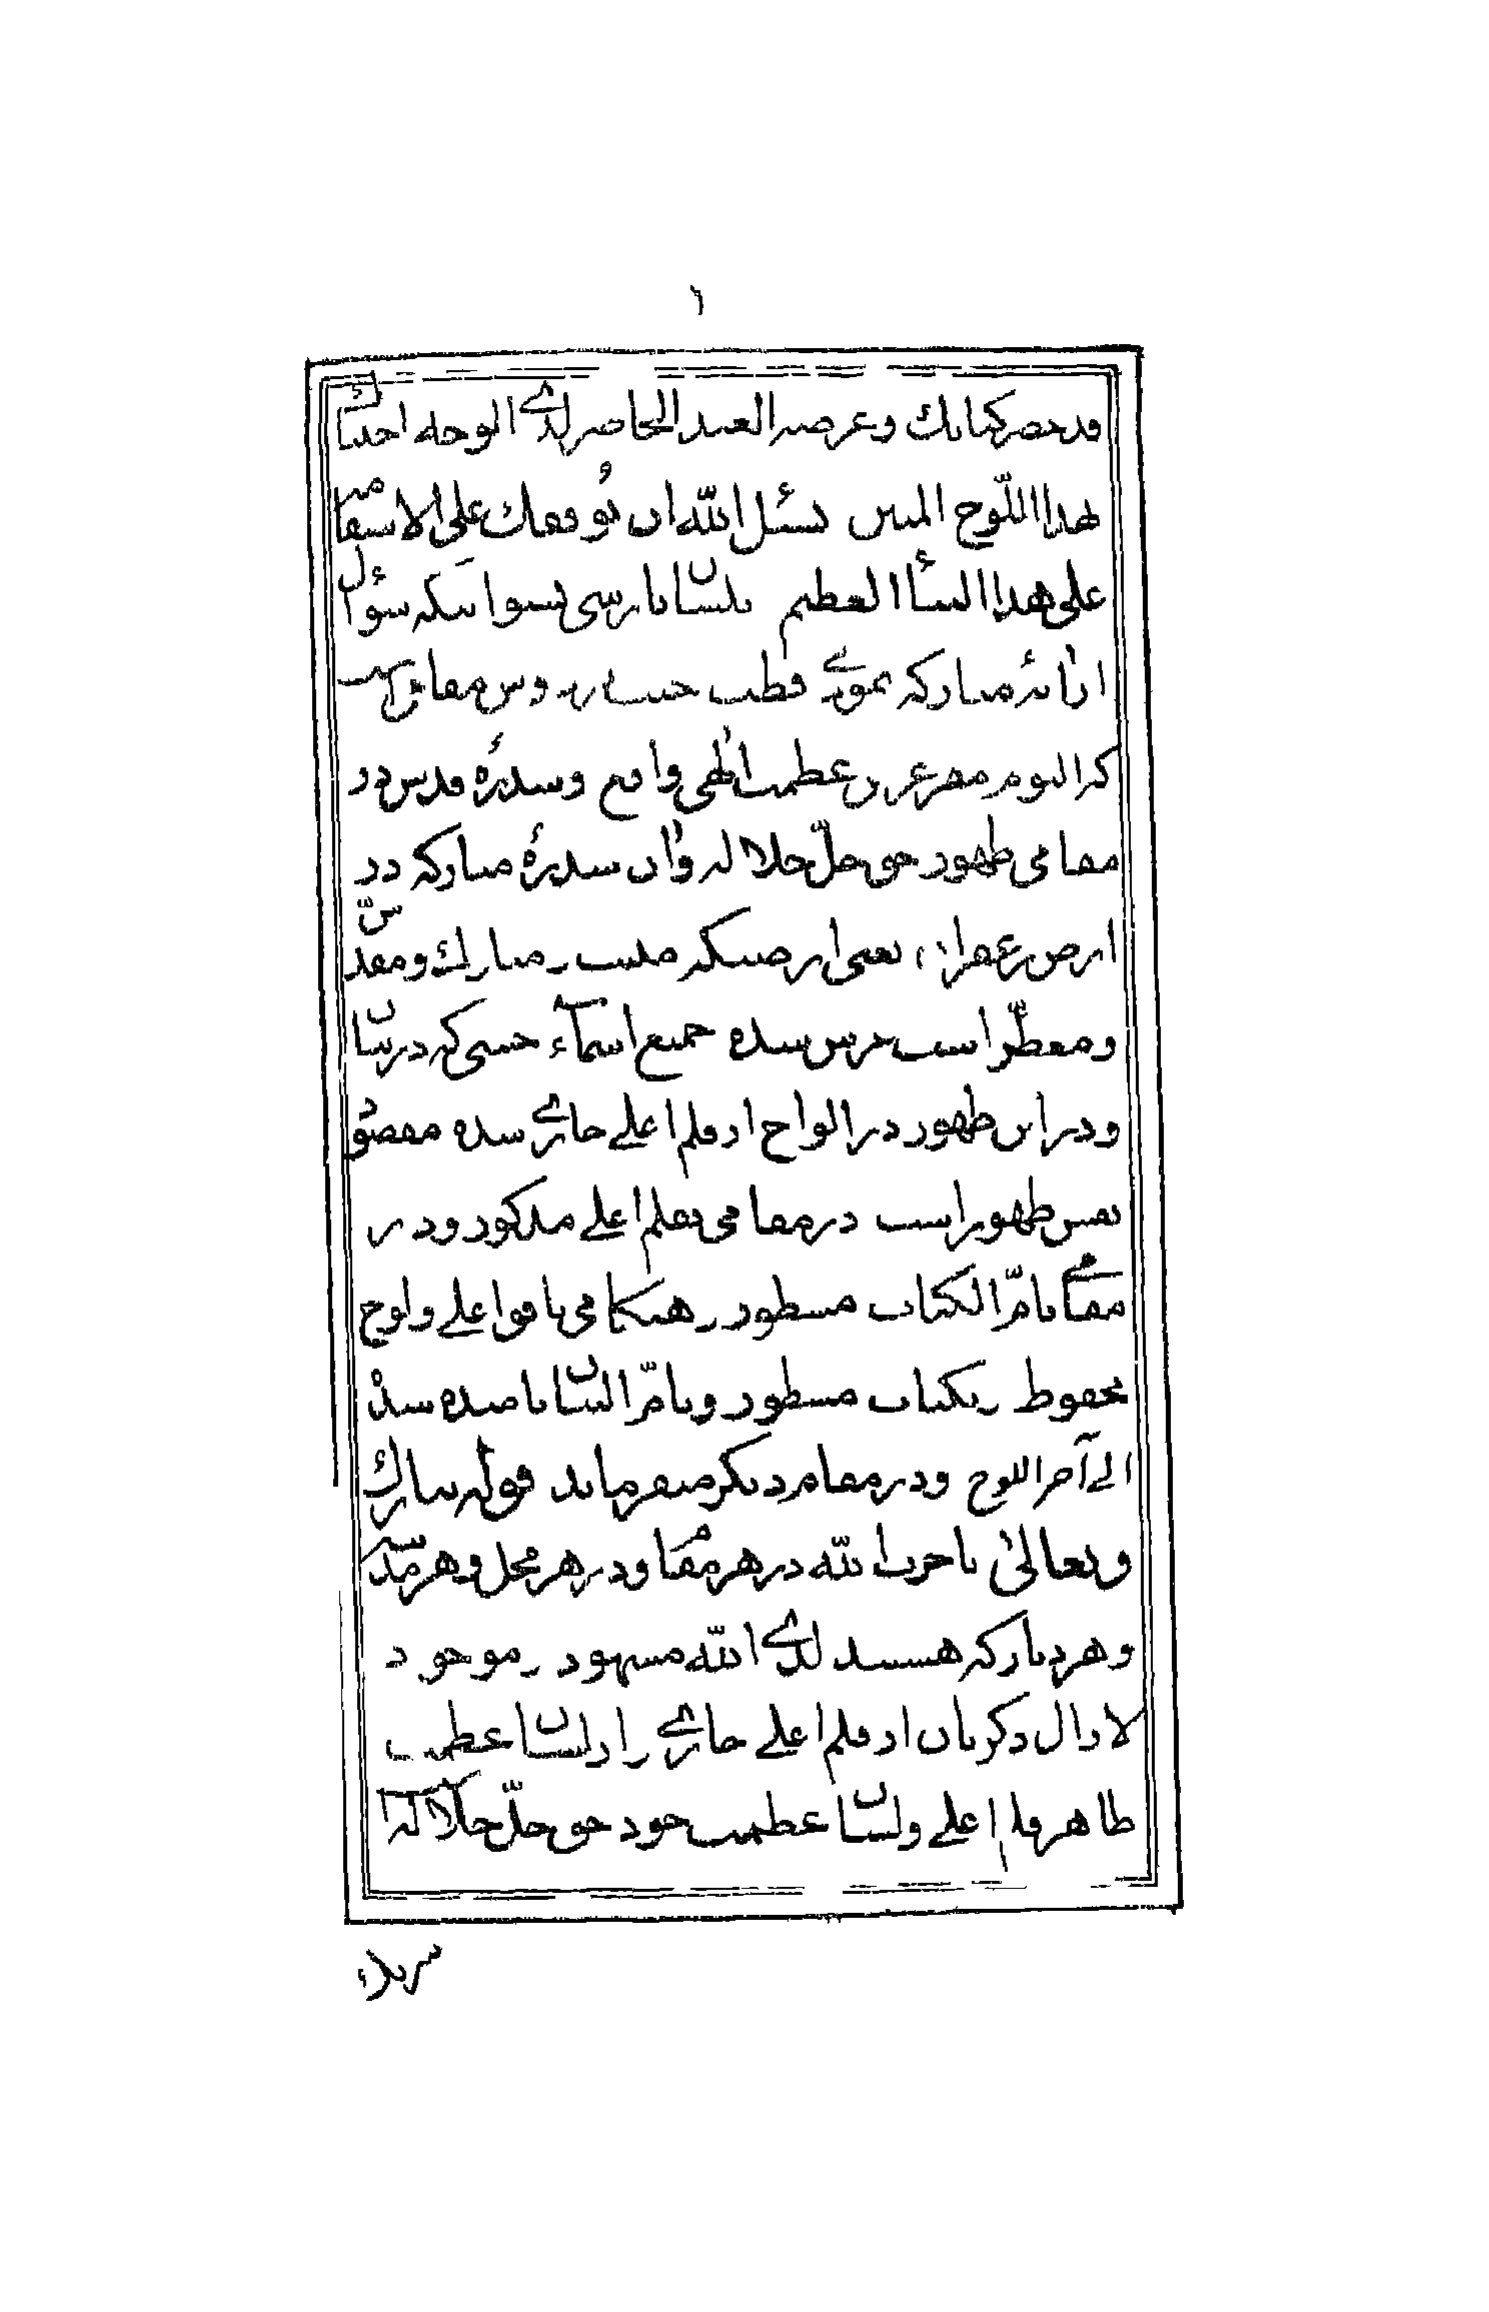 ١
قد حضر کتابک و عرضه العبد الحاضر لدی الوجه اجبناک
بهذا اللّوح المبین نسئل الله ان یُوفقک علی الاستقامة
علی هذا النبأ العظیم بلسان پارسی بشنو اینکه سؤال
از آیهٔ مبارکه نمودی قطب جنت فردوس مقامیست
که الیوم مقر عرش عظمت الهی واقع و سدرهٔ قدس در
مقامی ظهور حق جلّ جلاله و آن سدرهٔ مبارکه در
ارض زعفران یعنی ارضیکه منبت و مبارک و مقدّس
و معطّر است غرس شده جمیع اسمآء حسنی که در بیان
و در این ظهور در الواح از قلم اعلی جاری شده مقصود
نفس ظهور است در مقامی بقلم اعلی مذکور و در
مقامی بامّ الکتاب مسطور هنگامی بافق اعلی و لوح
محفوظ و کتاب مسطور و بامّ البیان نامیده شد
الی آخر اللوح و در مقام دیگر میفرماید قوله تبارک
و تعالیٰ یا حزب الله در هر مقام و در هر محل و هر مدینه
و هر دیار که هستید لدی الله مشهود و موجود
لازال ذکرتان از قلم اعلی جاری و از لسان عظمت
ظاهر قلم اعلی و لسان عظمت خود حق جلّ جلاله